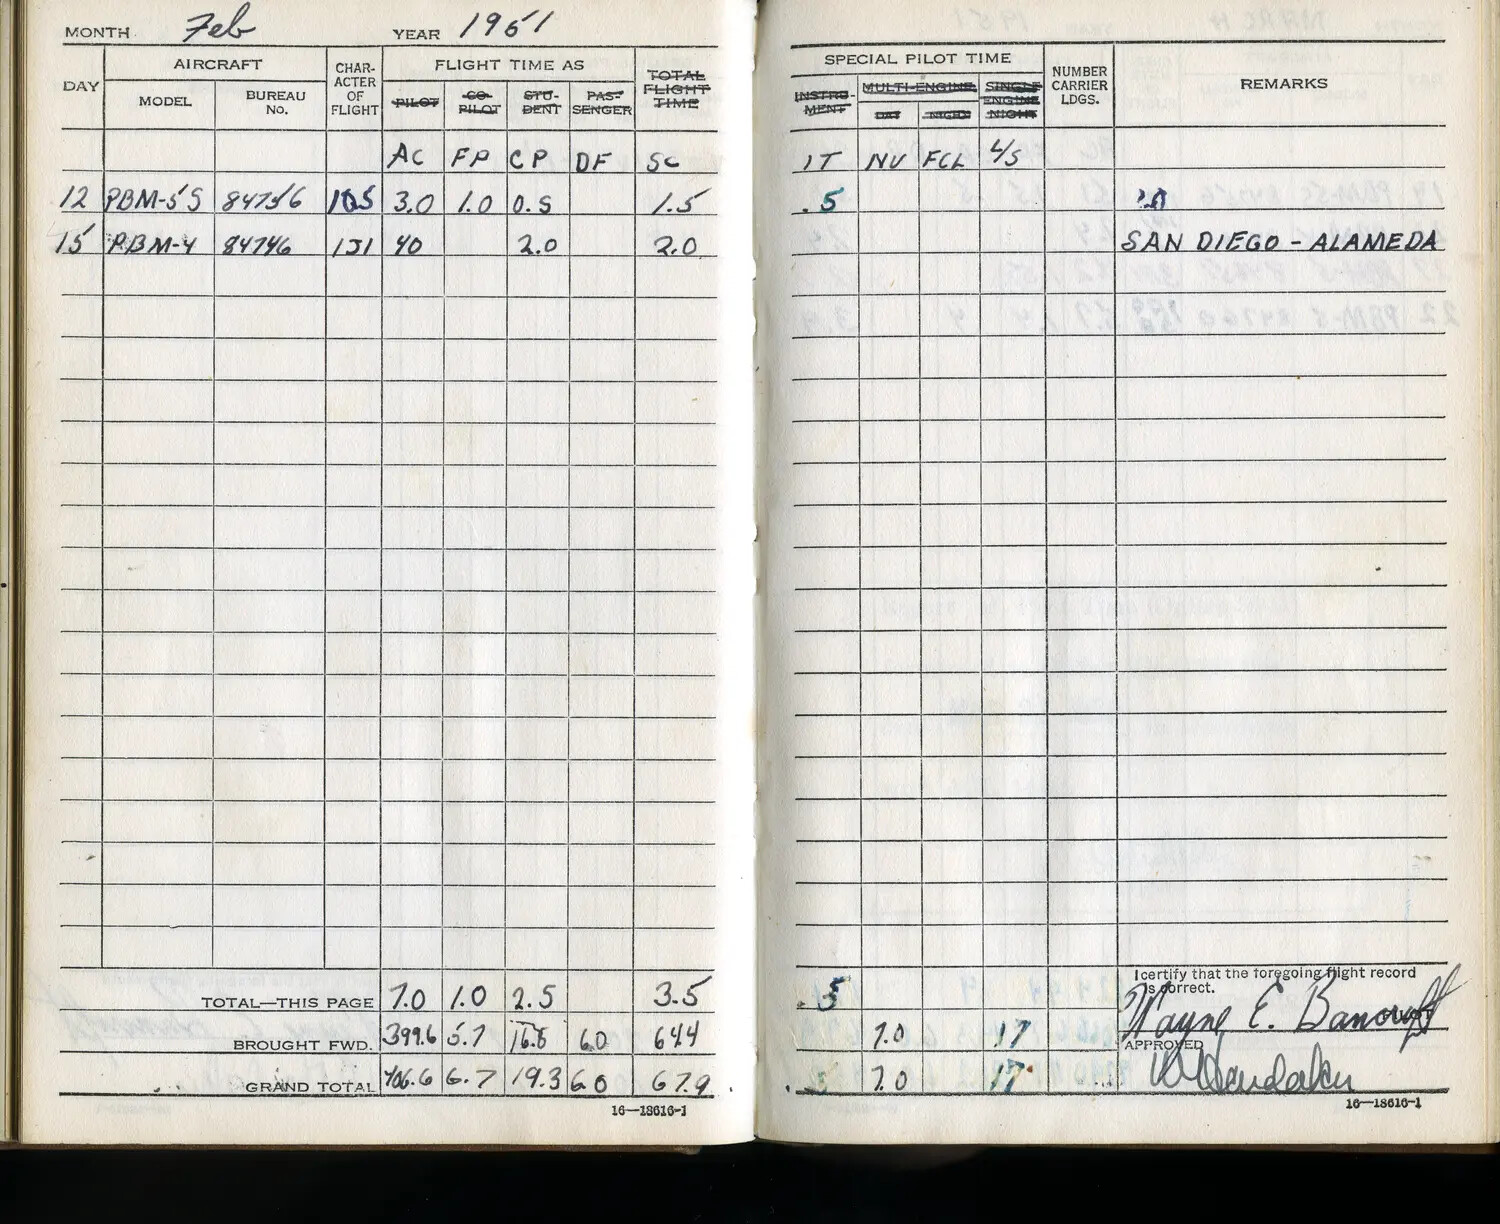 MONTH Feb YEAR 1951
DAY AIRCRAFT CHAR-ACTER OF FLIGHT FLIGHT TIME AS TOTAL FLIGHT TIME
MODEL BUREAU No. PILOT CO-PILOT STU-DENT PAS-SENGER
AC FP CP DF SC
12 PBM-5S 84756 1.0 0.5 1.5
15 PBM-4 84746 1J1 40 2.0 2.0
TOTAL—THIS PAGE 7.0 1.0 2.5 3.5
BROUGHT FWD. 399.6 5.7 16.8 6.0 64.4
GRAND TOTAL 406.6 6.7 19.3 6.0 67.9
16—18616-1
SPECIAL PILOT TIME NUMBER CARRIER LDGS. REMARKS
INSTRU-MENT MULTI-ENGINE SINGLE ENGINE NIGHT
DAY NIGHT
IT NV FCL L/S
.5
SAN DIEGO - ALAMEDA
I certify that the foregoing flight record is correct.
.5 Wayne E. Bancroft
7.0 17 APPROVED
7.0 17
16—18616-1